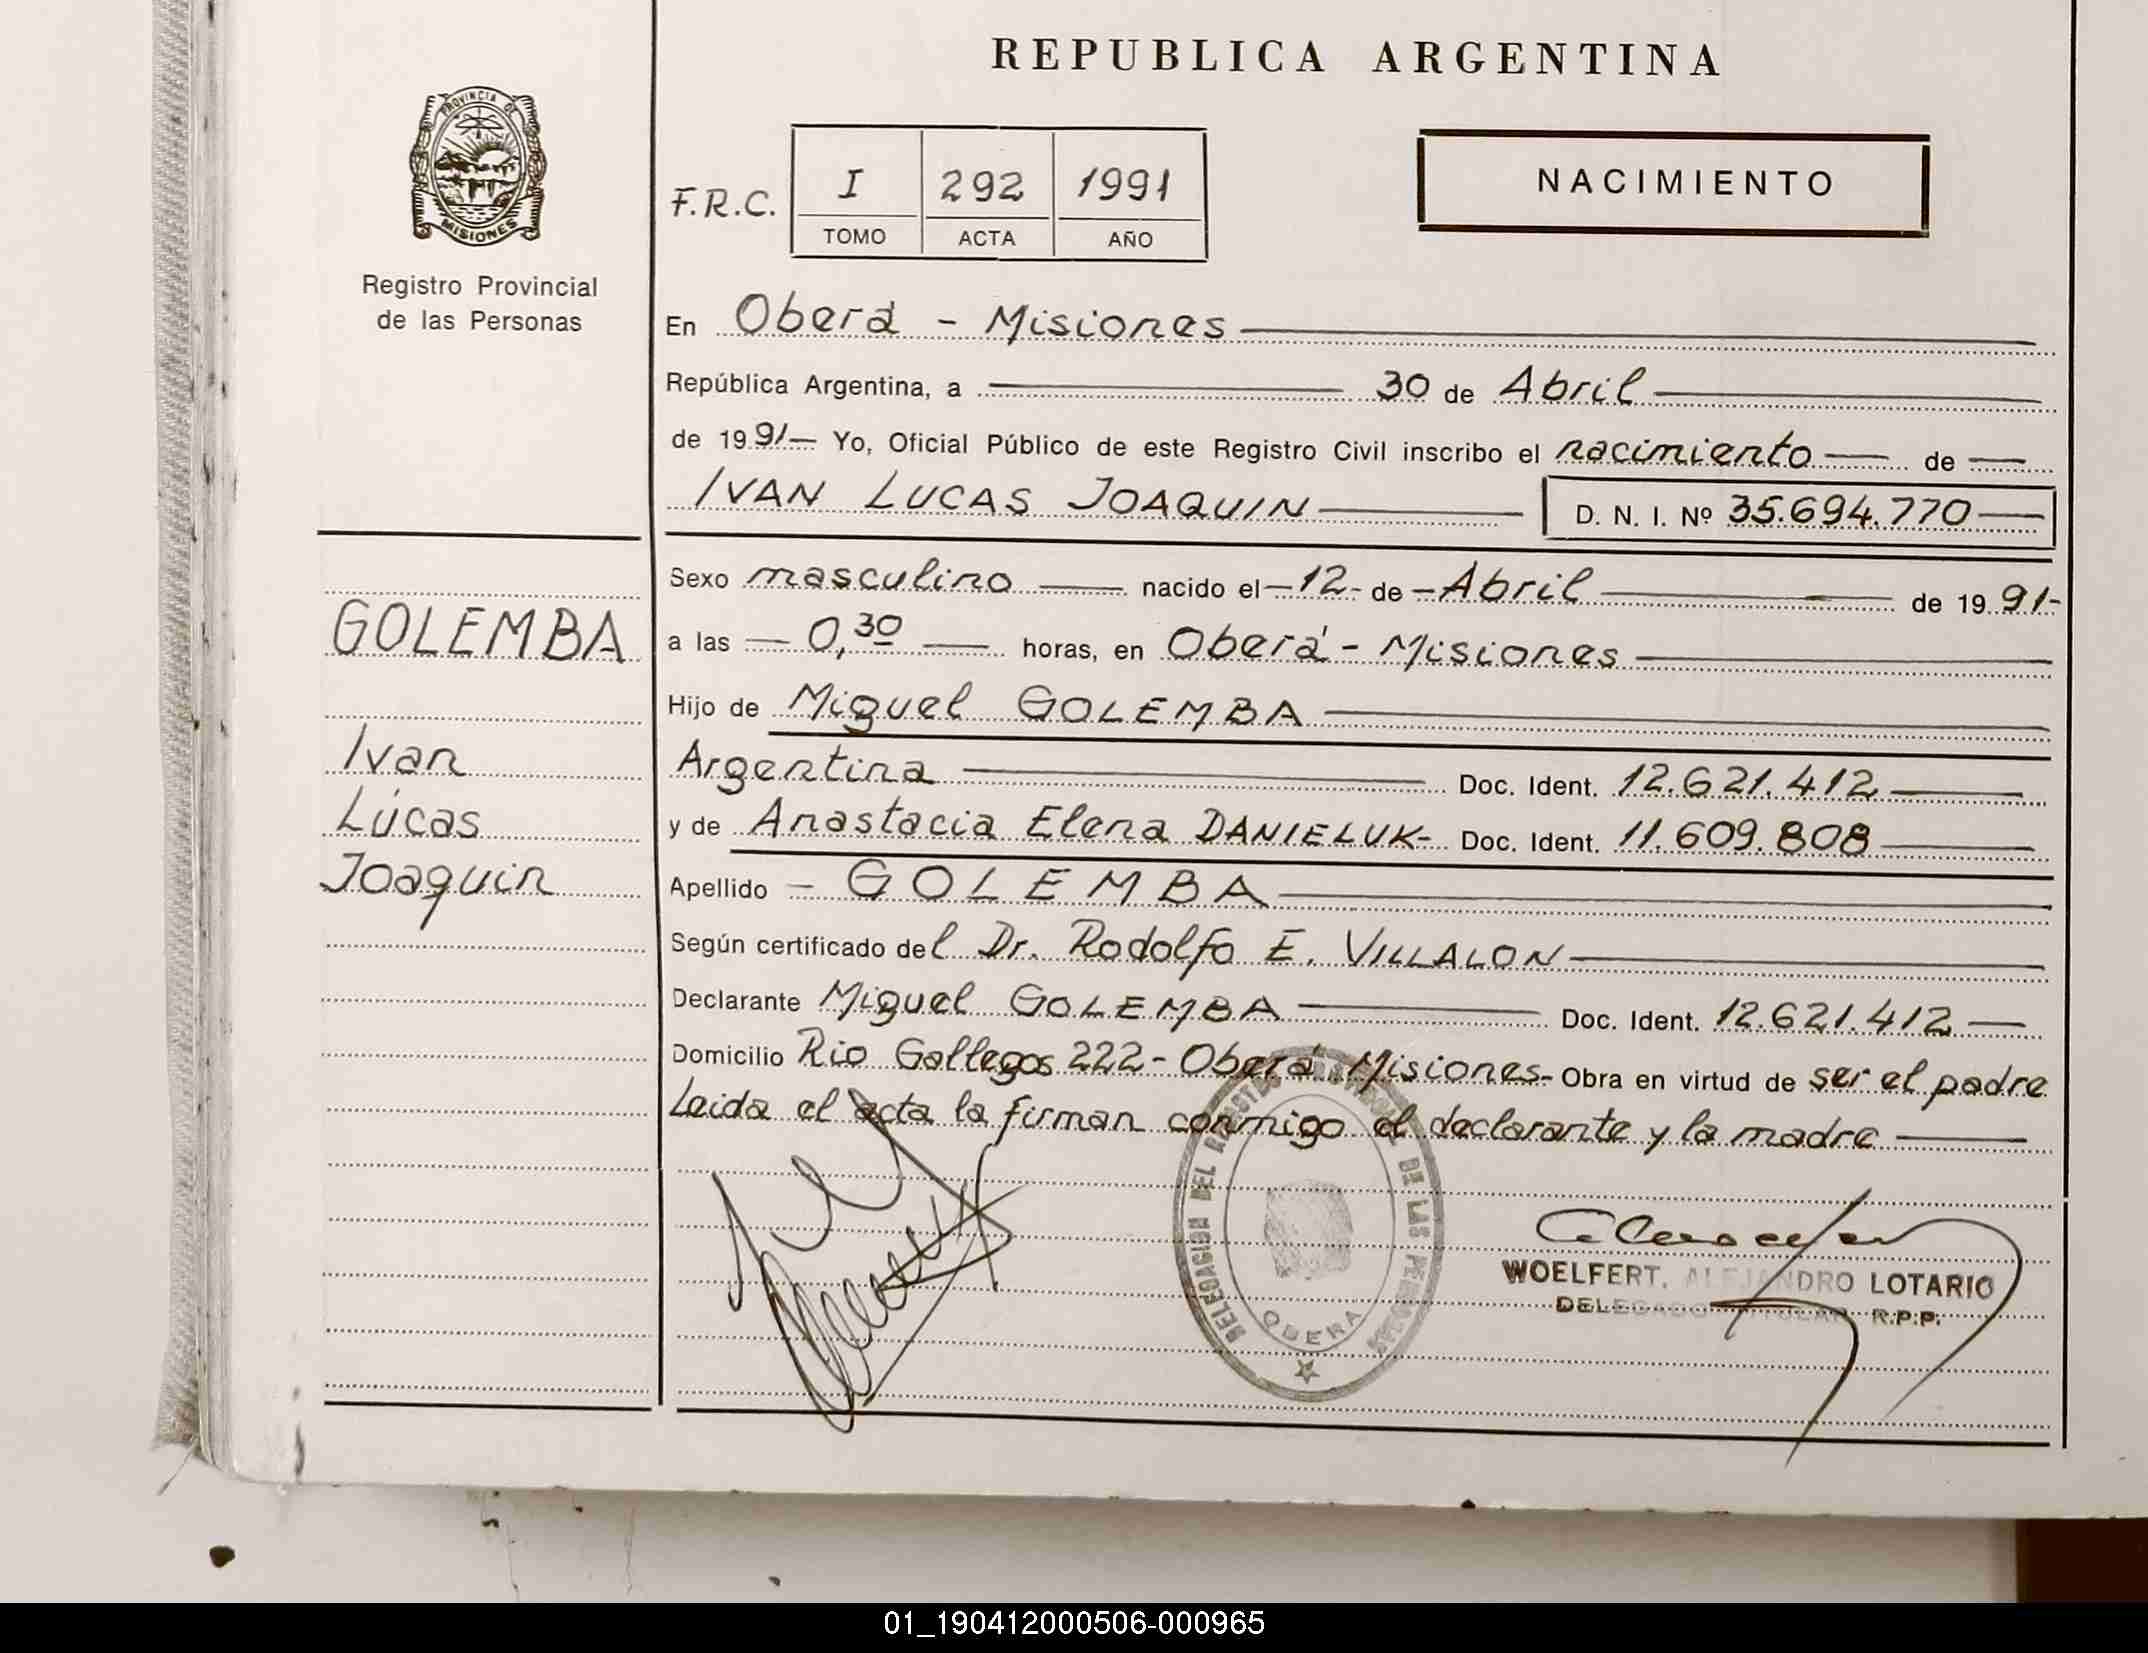 REPUBLICA ARGENTINA
PROVINCIA DE
MISIONES
Registro Provincial
de las Personas
F.R.C.
I 292 1991
TOMO ACTA AÑO
NACIMIENTO
En Oberá - Misiones
República Argentina, a 30 de Abril
de 1991- Yo, Oficial Público de este Registro Civil inscribo el nacimiento de
IVAN LUCAS JOAQUIN D. N. I. Nº 35.694.770
GOLEMBA
Ivan
Lucas
Joaquin
Sexo masculino nacido el -12- de -Abril de 1991-
a las 0,30 horas, en Oberá - Misiones
Hijo de Miguel GOLEMBA
Argentina Doc. Ident. 12.621.412
y de Anastacia Elena DANIELUK- Doc. Ident. 11.609.808
Apellido - GOLEMBA
Según certificado del Dr. Rodolfo E. VILLALON
Declarante Miguel GOLEMBA Doc. Ident. 12.621.412
Domicilio Rio Gallegos 222- Oberá Misiones- Obra en virtud de ser el padre
Leida el acta la firman conmigo el declarante y la madre
DELEGACION DEL REGISTRO DE LAS PERSONAS
OBERA
WOELFERT, ALEJANDRO LOTARIO
DELEGADO TITULAR R.P.P.
01_190412000506-000965